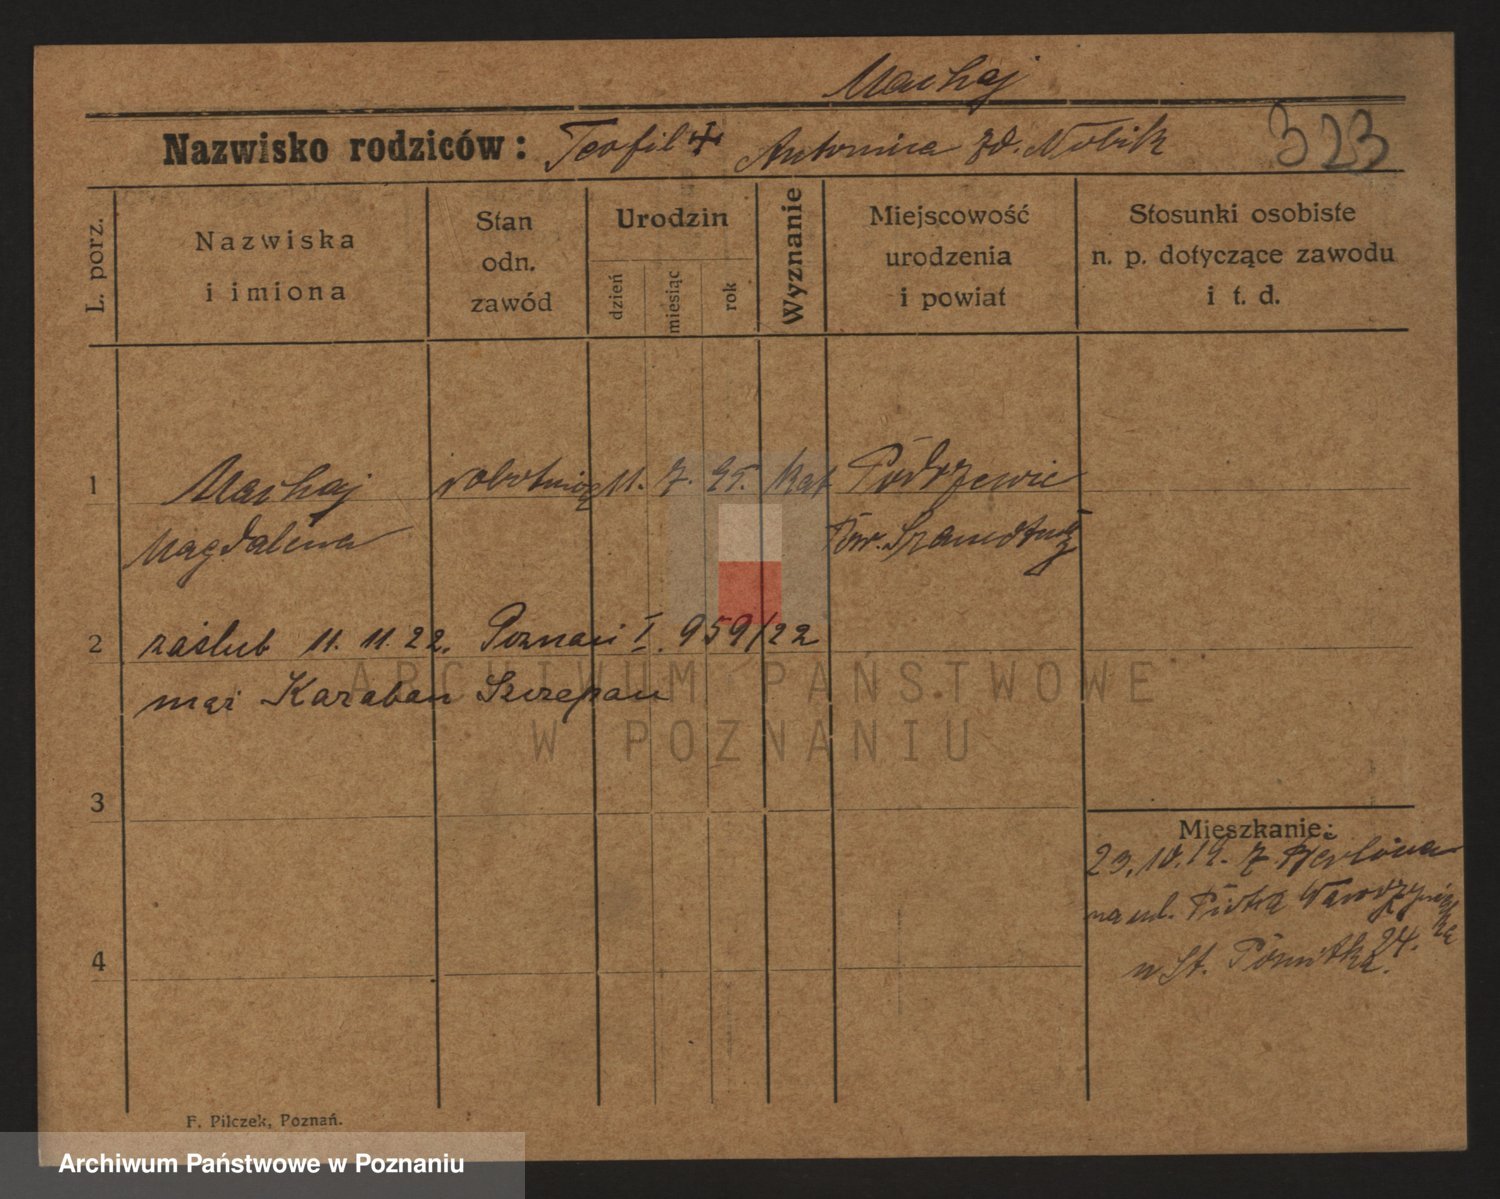 Machaj
Nazwisko rodziców: Teofil + Antonina zd. Nobik 323
L. porz.
Nazwiska
i imiona
Stan
odn.
zawód
Urodzin
dzień
miesiąc
rok
Wyznanie
Miejscowość
urodzenia
i powiat
Stosunki osobiste
n. p. dotyczące zawodu
i t. d.
1 Machaj robotnica 11. 7. 95. kat Podrzewie
Magdalena Pow. Szamotuły
2 zaślub 11. 11. 22. Poznań I. 959/22
mąż Karaban Szczepan
ARCHIWUM PAŃSTWOWE
W POZNANIU
3
Mieszkanie:
23. 10. 19. z Berlina
na ul. Piotra Wawrzyniaka
24.
u St.
4
F. Pilczek, Poznań.
Archiwum Państwowe w Poznaniu